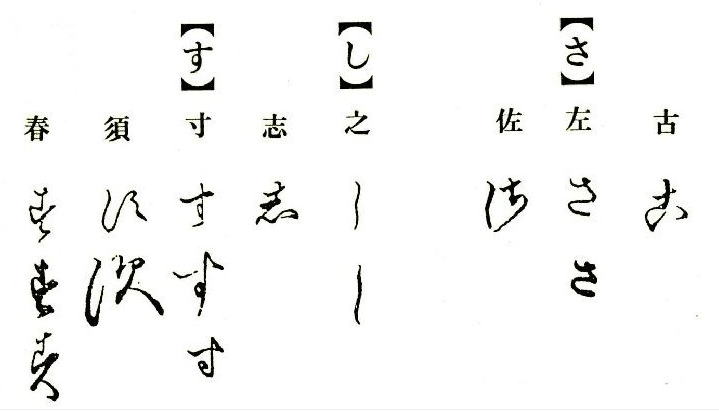 古 古
【さ】左 さ さ
佐 佐
【し】之 し し
志 志
【す】寸 す す す
須 須 須
春 春 春 春